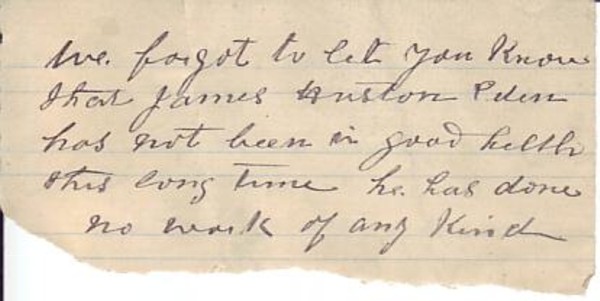 We. forgot to let you Know
that James Huston Eden
has not been in good helth
this long time he. has done
no work of any Kind